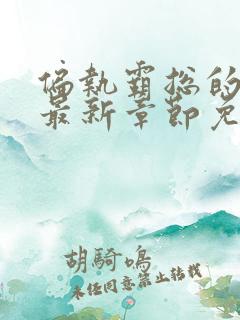 偏執霸总的
最新章節免
胡騎鳴
未经同意禁止转载